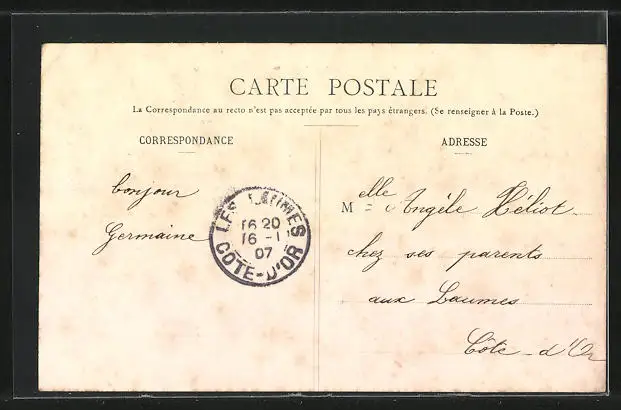 CARTE POSTALE
La Correspondance au recto n'est pas acceptée par tous les pays étrangers. (Se renseigner à la Poste.)
CORRESPONDANCE
bonjour
Germaine
LES LAUMES
16 20
16 - 1
07
COTE-D'OR
ADRESSE
Melle Angèle Héliot
chez ses parents
aux Laumes
Côte-d'Or